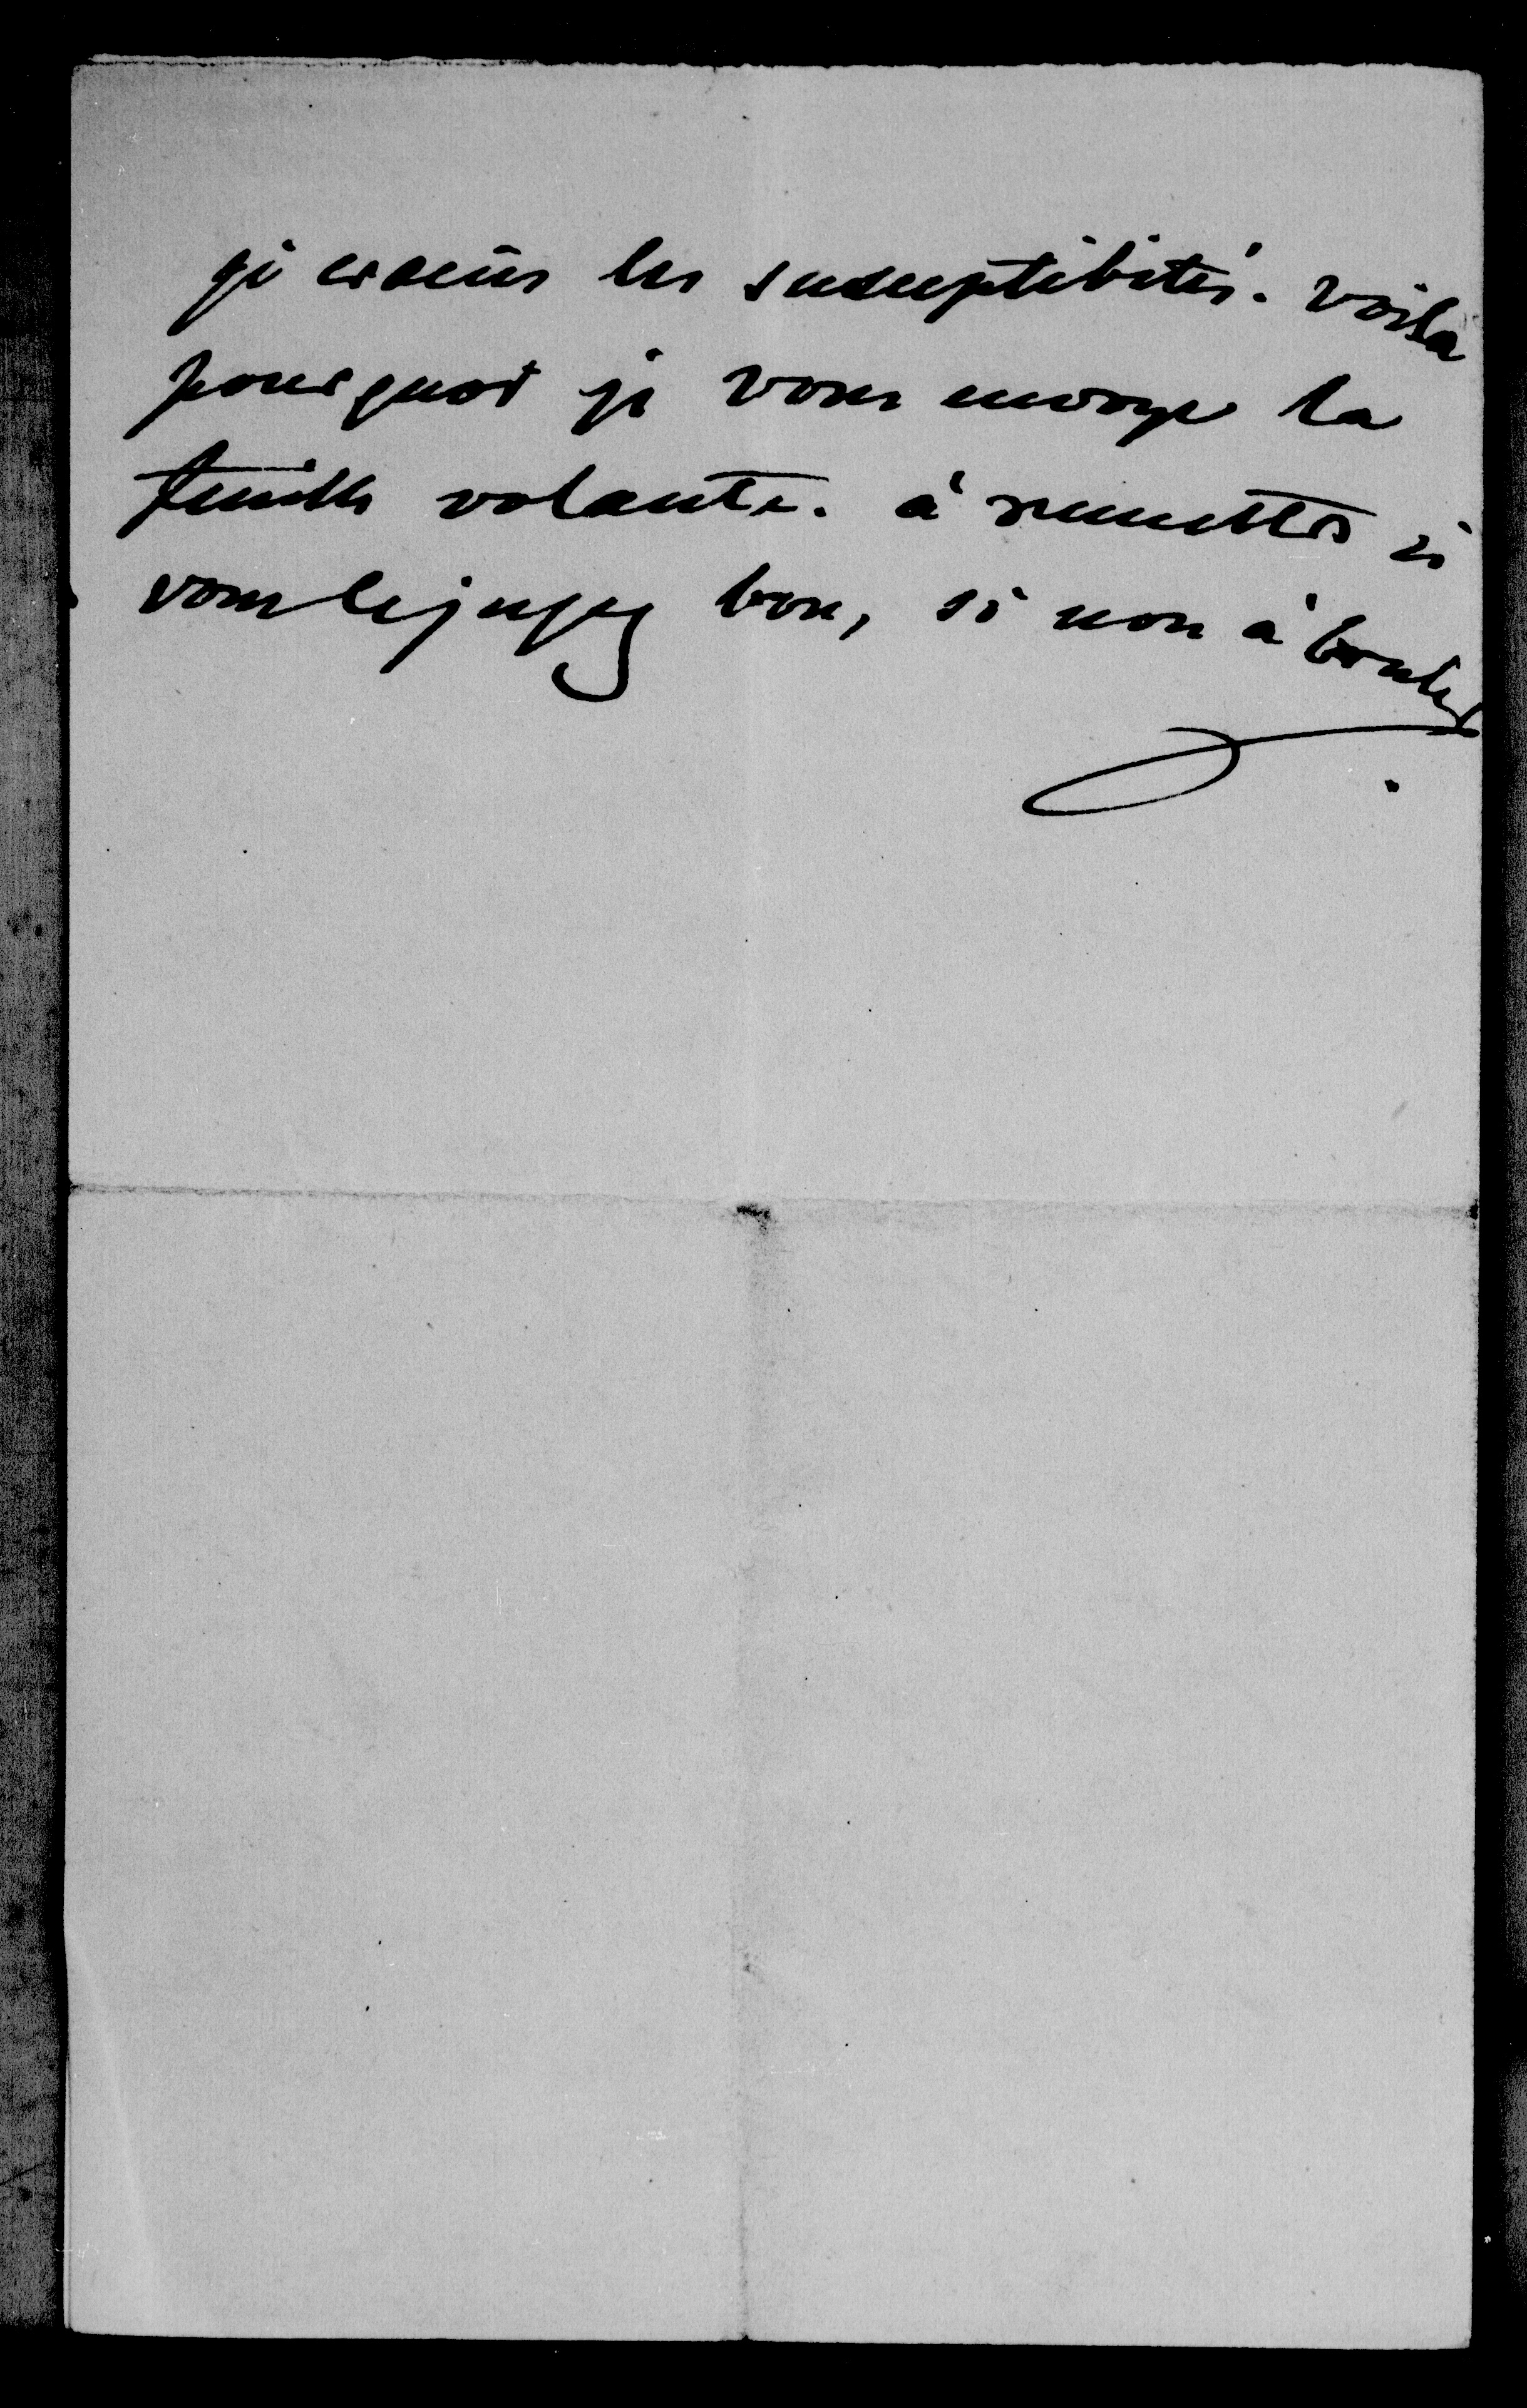 je crains les susceptibités. Voila
pourquoi je vous envoye la
feuille volante. à remettre si
vous le jugez bon, si non à bruler